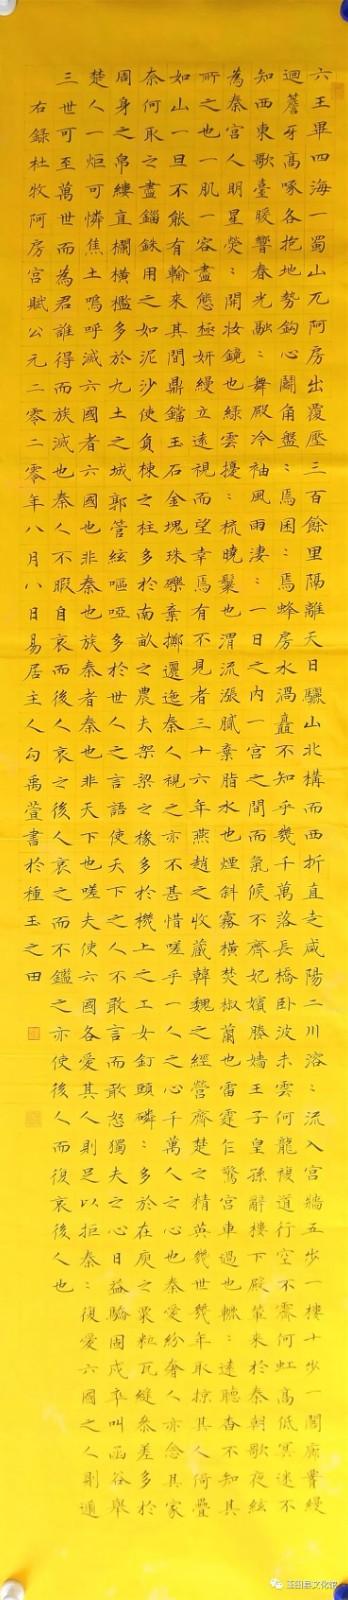 六王畢四海一蜀山兀阿房出覆壓三百餘里隔離天日驪山北構而西折直走咸陽二川溶：流入宮牆五步一樓十步一閣廊腰縵
迴簷牙高啄各抱地勢鈎心鬭角盤：焉囷：焉蜂房水渦矗不知乎幾千萬落長橋臥波未雲何龍複道行空不霽何虹高低冥迷不
知西東歌臺暖響春光融：舞殿冷袖風雨淒：一日之內一宮之間而氣候不齊妃嬪媵嬙王子皇孫辭樓下殿輦來於秦朝歌夜絃
為秦宮人明星熒：開妝鏡也綠雲擾：梳曉鬟也渭流漲膩棄脂水也煙斜霧橫焚椒蘭也雷霆乍驚宮車過也轆：遠聽杳不知其
所之也一肌一容盡態極妍縵立遠視而望幸焉有不見者三十六年燕趙之收藏韓魏之經營齊楚之精英幾世幾年取掠其人倚疊
如山一旦不能有輸來其間鼎鐺玉石金塊珠礫棄擲邐迤秦人視之亦不甚惜嗟乎一人之心千萬人之心也秦愛紛奢人亦念其家
奈何取之盡錙銖用之如泥沙使負棟之柱多於南畝之農夫架梁之椽多於機上之工女釘頭磷：多於在庾之粟粒瓦縫參差多於
周身之帛縷直欄橫檻多於九土之城郭管絃嘔啞多於世人之言語使天下之人不敢言而敢怒獨夫之心日益驕固戍卒叫函谷舉
楚人一炬可憐焦土嗚呼滅六國者六國也非秦也族秦者秦也非天下也嗟夫使六國各愛其人則足以拒秦：復愛六國之人則遞
三世可至萬世而為君誰得而族滅也秦人不暇自哀而後人哀之後人哀之而不鑑之亦使後人而復哀後人也
右錄杜牧阿房宮賦公元二零二零年八月八日易居主人勾禹萱書於種玉之田
玉田县文化馆